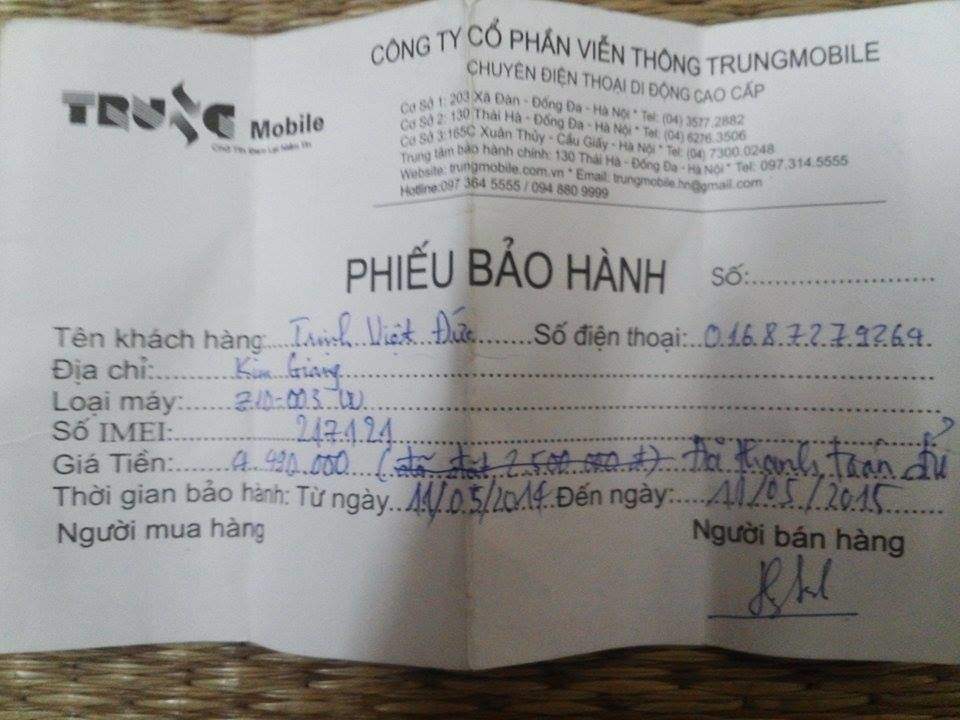 TRUNG Mobile
CÔNG TY CỔ PHẦN VIỄN THÔNG TRUNGMOBILE
CHUYÊN ĐIỆN THOẠI DI ĐỘNG CAO CẤP
Cơ Sở 1: 203 Xã Đàn - Đống Đa - Hà Nội * Tel: (04) 3577.2882
Cơ Sở 2: 130 Thái Hà - Đống Đa - Hà Nội * Tel: (04) 6276.3506
Cơ Sở 3:165C Xuân Thủy - Cầu Giấy - Hà Nội * Tel: (04) 7300.0248
Trung tâm bảo hành chính: 130 Thái Hà - Đống Đa - Hà Nội * Tel: 097.314.5555
Website: trungmobile.com.vn * Email: trungmobile.hn@gmail.com
Hotline:097 364 5555 / 094 880 9999
PHIẾU BẢO HÀNH Số:
Tên khách hàng: Trịnh Việt Đức Số điện thoại: 01687279269
Địa chỉ: Kim Giang
Loại máy: Z10-003
Số IMEI: 217121
Giá Tiền: 4.490.000 (đã đặt 2.500.000 đ) Đã thanh toán đủ
Thời gian bảo hành: Từ ngày 11/05/2014 Đến ngày: 11/05/2015
Người mua hàng Người bán hàng